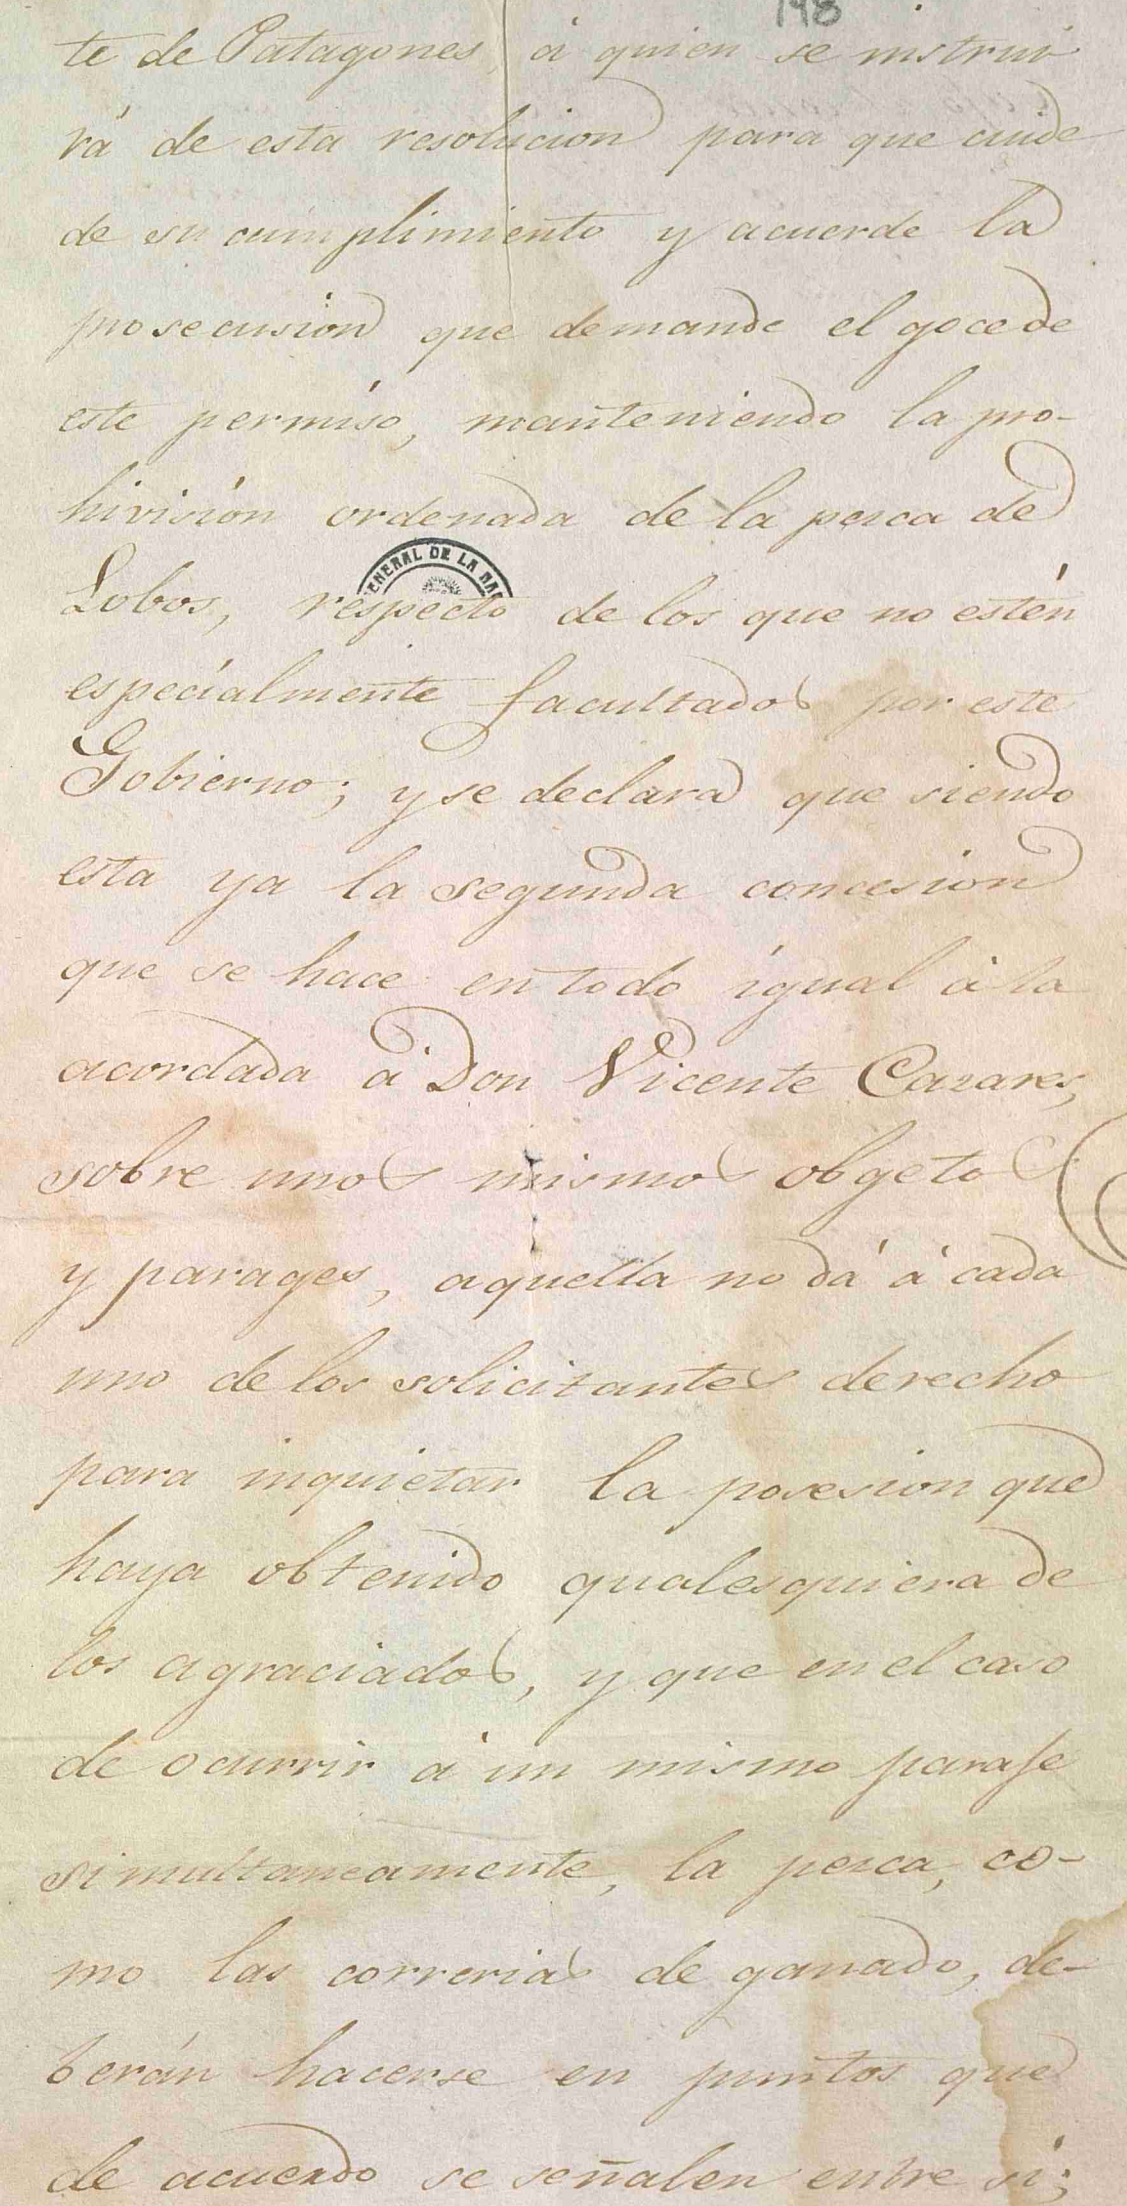 198
te de Patagones, á quien se instrui
rá de esta resolucion para que cuide
de su cumplimiento y acuerde la
prosecusion que demande el goce de
este permiso, manteniendo la pro-
hivisión ordenada de la pesca de
Lobos, respecto de los que no estén
ENERAL DE LA NAC
especialmente facultados por este
Gobierno; y se declara que siendo
esta ya la segunda concesion
que se hace en todo igual à la
acordada á Don Vicente Cazares,
sobre unos mismos obgetos
y parages, aquella no dá á cada
uno de los solicitantes derecho
para inquietar la posesion que
haya obtenido qualesquiera de
los agraciados, y que en el caso
de ocurrir á un mismo paraje
simultaneamente, la pesca, co-
mo las correrias de ganado, de-
berán hacerse en puntos que
de acuerdo se señalen entre si;